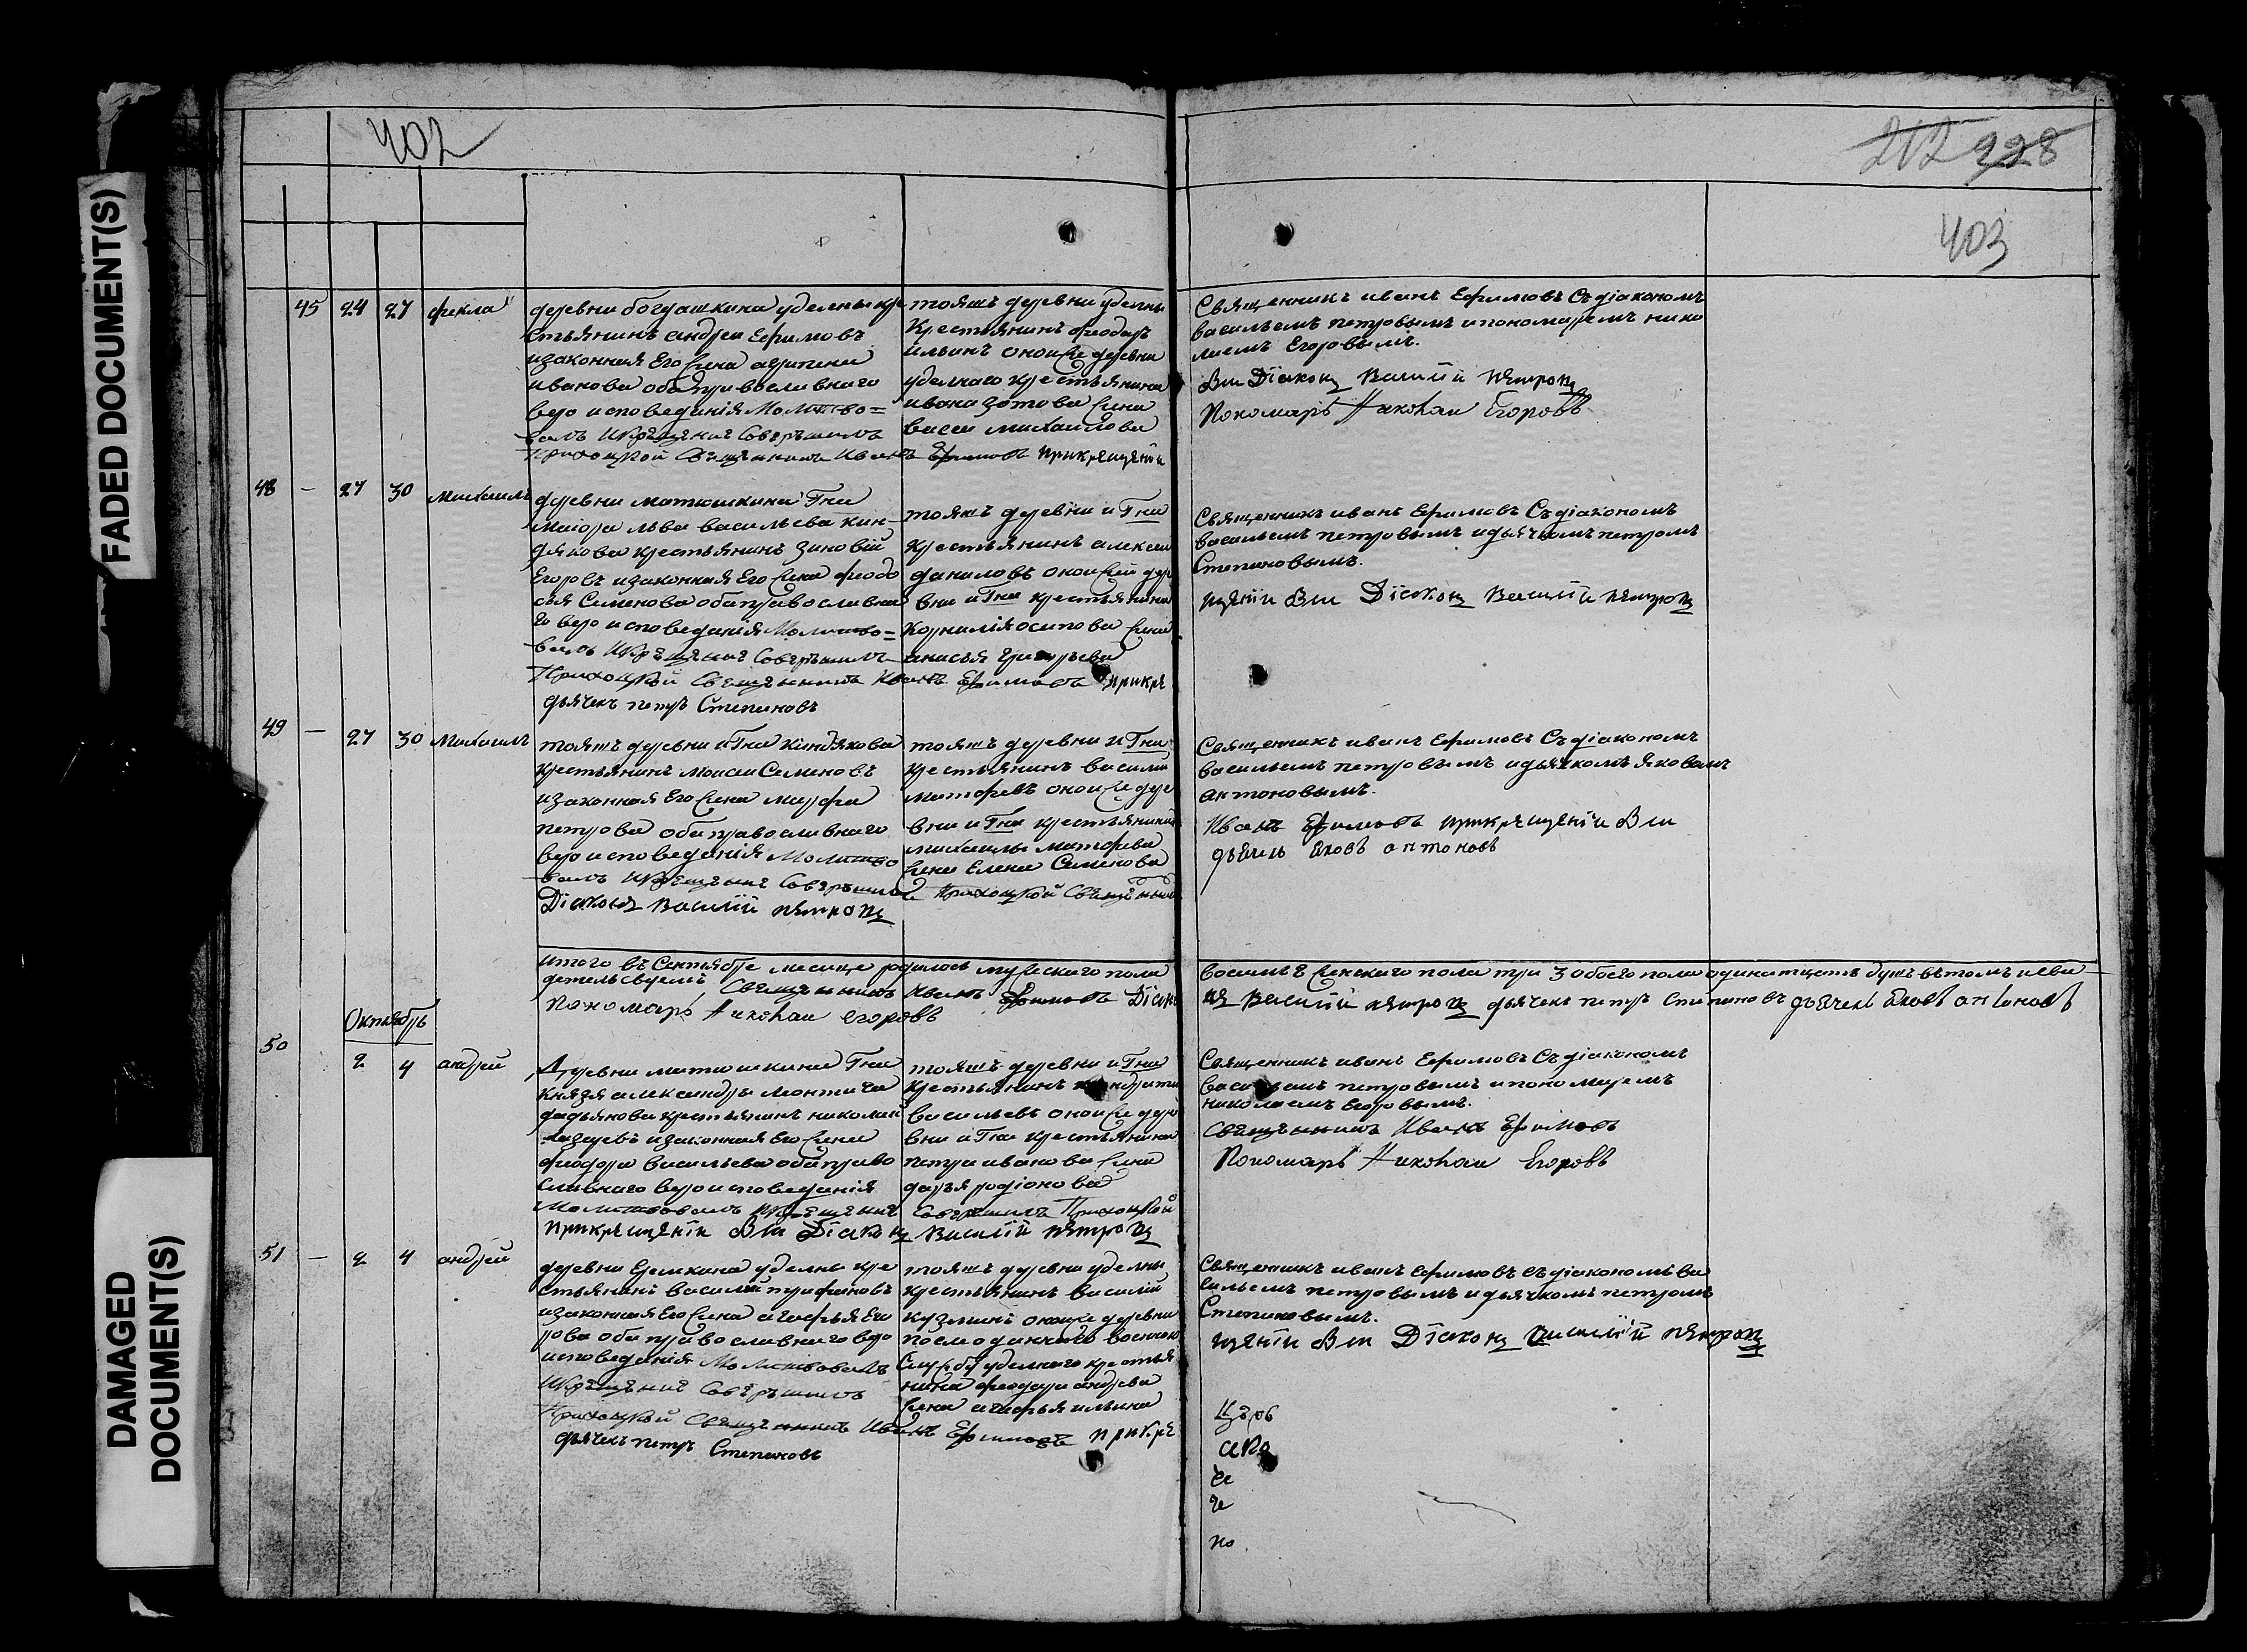 FADED DOCUMENT(S)
DAMAGED
DOCUMENT(S)
402
212 228
403
45 24 27 фекла
деревни богдашкина уделны кре
стьянинъ андреи Ефимовъ
изаконная Его жена агрипена
иванова оба православнаго
веро исповеданія Молитво=
валъ
Совершилъ
тояжъ деревни уделны
Крестьянинъ феодоръ
ильинъ оной же деревни
уделнаго крестьянина
ивана зотова жена
васса михаилова
Священникъ иванъ Ефимовъ Съ діакономъ
васильемъ петровымъ и пономаремъ нико
лаемъ Егоровымъ.
Діаконъ Василій петровъ
Пономарь Николаи Егоровъ
48 – 27 30 михаилъ
деревни матюшкина Гна
маіора льва васильева кин-
дякова крестьянинъ зиновій
Егоровъ изаконная Его жена феодо
сья Семенова оба православна
го веро исповеданія Молитво=
валъ
Совершилъ
дьячекъ петръ Степановъ
тояжъ деревни и Гна
Крестьянинъ алексеи
даниловъ оной жей дер
вни и Гна крестьянина
Корнилія осипова жена
анисья григорьева
Священникъ иванъ Ефимовъ Съ діакономъ
васильемъ петровымъ и дьячкомъ петромъ
Степановымъ.
Діаконъ Василій петровъ
49 – 27 30 Михаилъ
тояжъ деревни и Гна Киндякова
Крестьянинъ моисеи Семеновъ
изаконная Его жена марфа
петрова оба православнаго
веро исповеданія Молитво
валъ
Діаконъ Василій петровъ
тояжъ деревни и Гна
крестьянинъ василій
матфеевъ оной же дере
вни и Гна крестьянина
михаилы матфева
жена Елена Семенова
Священникъ иванъ Ефимовъ Съ діакономъ
васильемъ петровымъ и дьячкомъ яковомъ
антоновымъ.
Иванъ Ефимовъ
яковъ антоновъ
итого въ Сентябре месяце родилось мужескаго пола
восемь 8 женскаго пола три 3 обоего пола одинатцеть душъ вътомъ и сви
детельствуемъ Священникъ Иванъ Ефимовъ Діако
нъ Василій петровъ дьячекъ петръ Степановъ дьячекъ яковъ антоновъ
Пономарь Николаи Егоровъ
Октябрь
50 2 4 андрей
Деревни матюшкина Гна
Князя александры леонтича
дадьянова крестьянинъ николай
изаконная Его жена
феодора васильева оба право
славнаго веро исповеданія
Молитвовалъ
Діаконъ Василій петровъ
тояжъ деревни и Гна
крестьянинъ кондрати
васильевъ оной же дере
вни и Гна крестьянина
петра иванова жена
дарья родіонова
Священникъ иванъ Ефимовъ Съ діакономъ
васильемъ петровымъ и пономаремъ
николаемъ Егоровымъ.
Священникъ Иванъ Ефимовъ
Пономарь Николаи Егоровъ
51 – 2 4 андрей
деревни Еделкина уделны кре
стьянинъ василій трифоновъ
изаконная Его жена агафья Его
рова оба православнаго веро
исповеданія Молитвовалъ
Совершилъ
Иванъ Ефимовъ
дьячекъ петръ Степановъ
тояжъ деревни уделны
крестьянинъ василій
кузминъ оной же деревни
военною
службу уделнаго крестья
нина феодора андреева
жена агафья ильина
Священникъ иванъ Ефимовъ съ діакономъ ва
сильемъ петровымъ и дьячкомъ петромъ
Степановымъ.
Діаконъ Василій петровъ
но